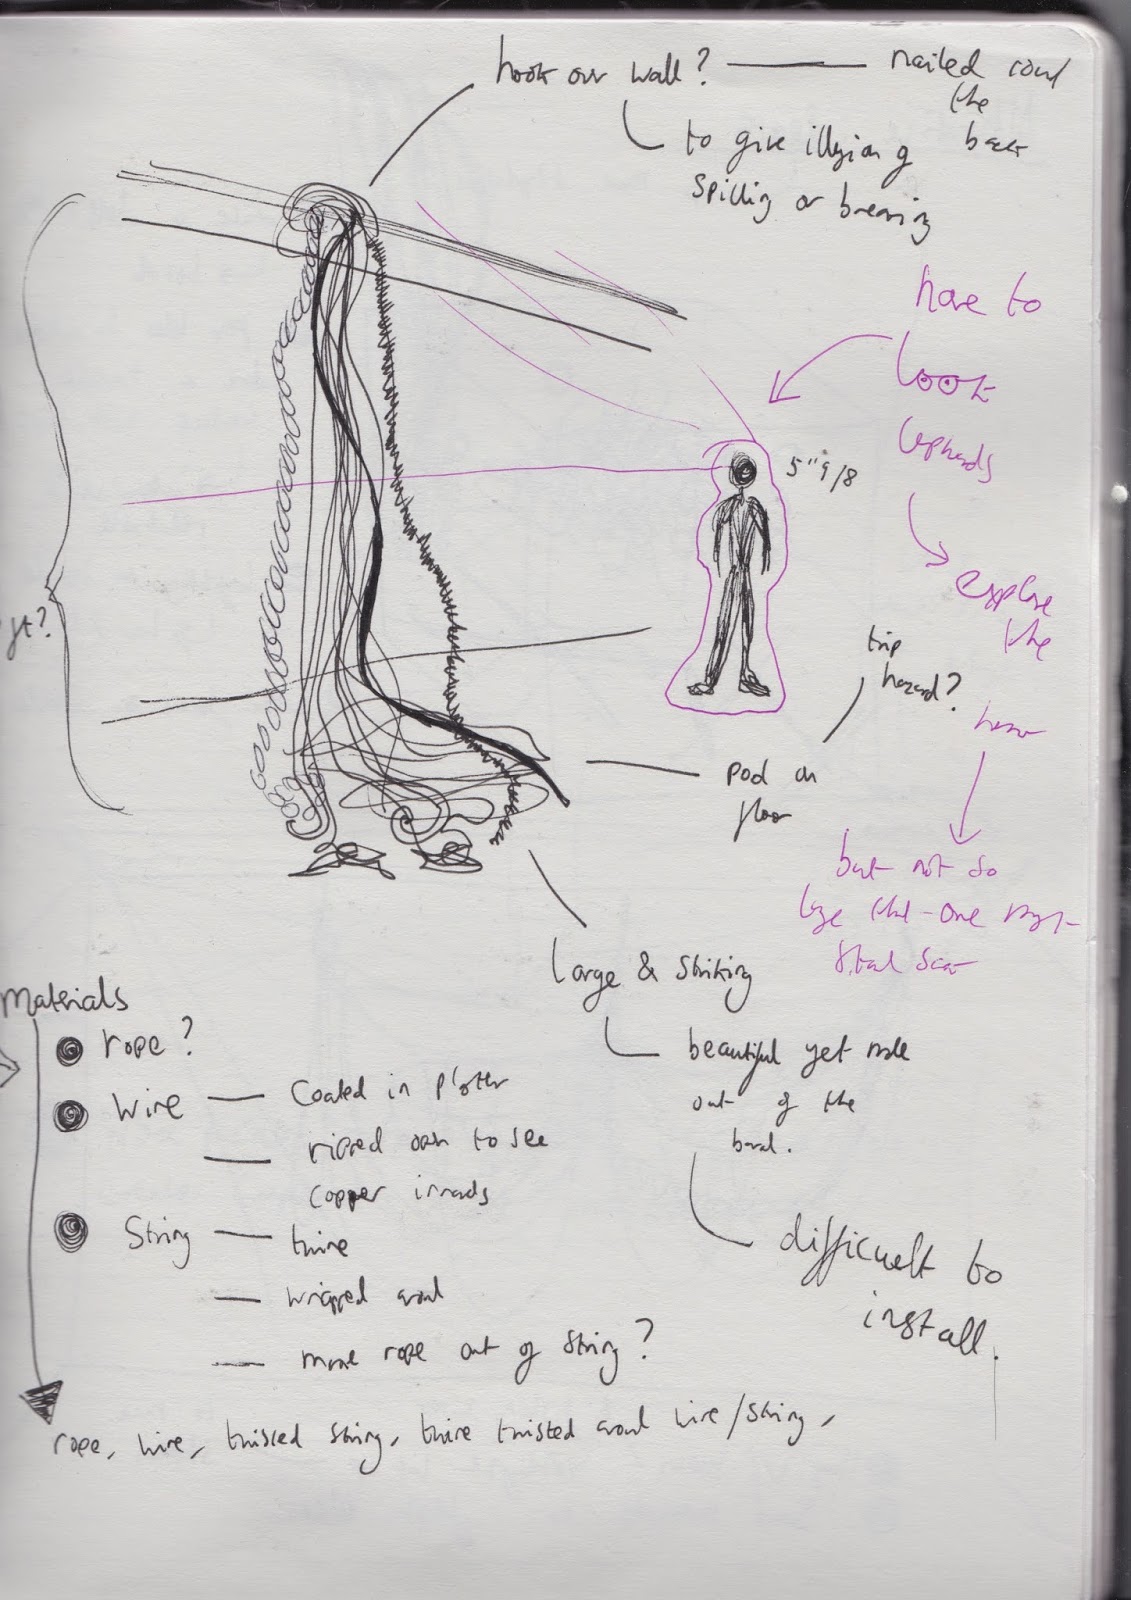 hook over wall? — nailed round
the
back
to give illusion of
spilling or breaking
have to
look
upwards
5"9/8
explore
the
trip
hazard?
pool on
floor
but not so
large that - one
Large & Striking
beautiful yet made
out of the
banal.
difficult to
install.
Materials
rope?
Wire — Coated in plaster
— ripped open to see
copper inwards
String — twine
— wrapped around
— more rope out of string?
rope, wire, twisted string, twine twisted around wire/string,